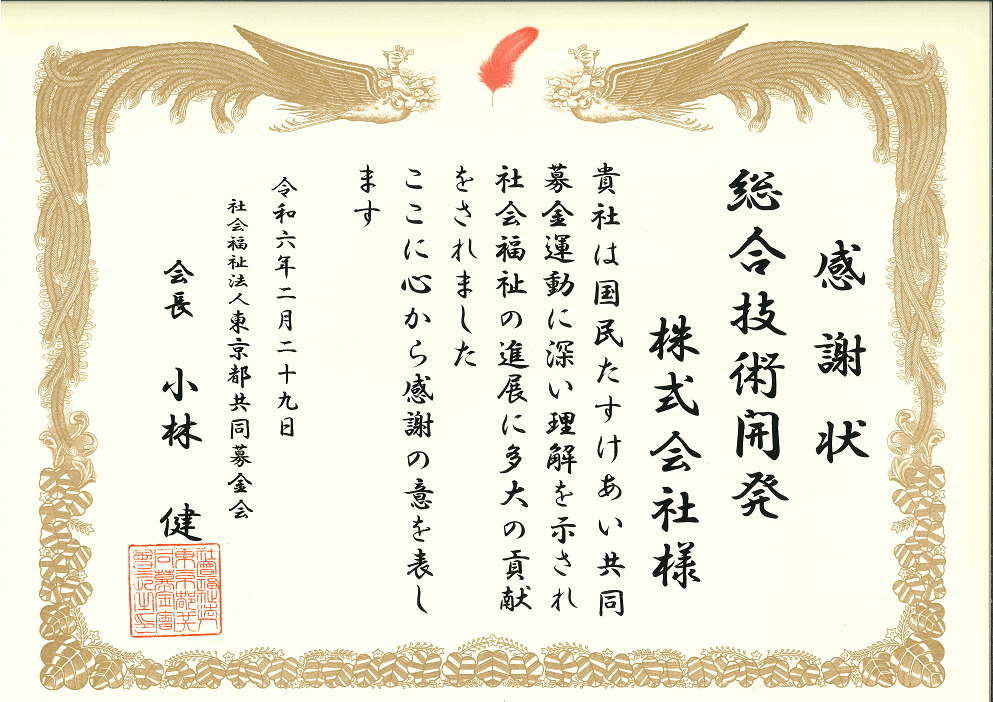 感謝状
総合技術開発
株式会社様
貴社は国民たすけあい共同
募金運動に深い理解を示され
社会福祉の進展に多大の貢献
をされました
ここに心から感謝の意を表し
ます
令和六年二月二十九日
社会福祉法人東京都共同募金会
会長 小林 健